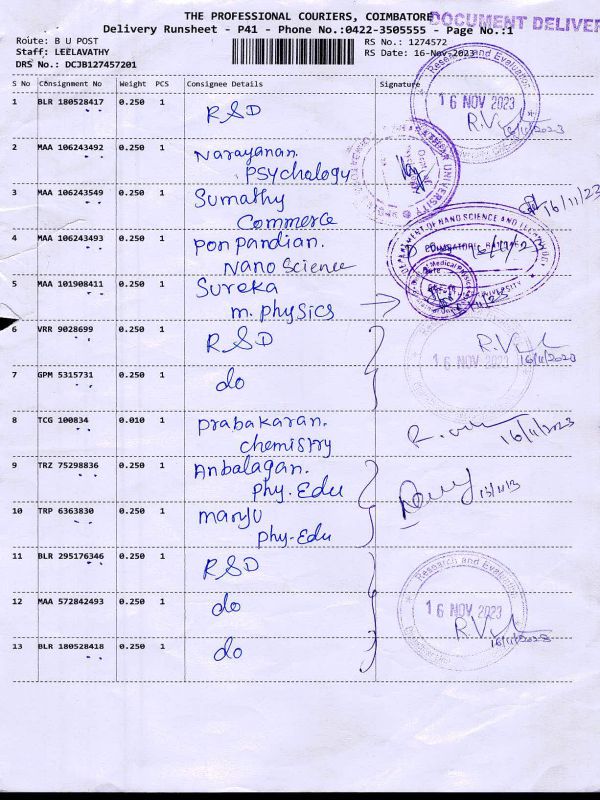 THE PROFESSIONAL COURIERS, COIMBATORE
DOCUMENT DELIVER
Delivery Runsheet - P41 - Phone No.:0422-3505555 - Page No.:1
Route: B U POST
RS No.: 1274572
Staff: LEELAVATHY
RS Date: 16-Nov-2023
DRS No.: DCJB127457201
S No Consignment No Weight PCS Consignee Details Signature
1 BLR 180528417 0.250 1 R&D
Research and Evaluation
16 NOV 2023
16/11/2023
2 MAA 106243492 0.250 1 Narayanan.
Psychology
3 MAA 106243549 0.250 1 Sumathy
Commerce
16/11/23
4 MAA 106243493 0.250 1 Ponpandian.
Nano Science
DEPARTMENT OF NANO SCIENCE AND TECHNOLOGY
5 MAA 101908411 0.250 1 Sureka
m. physics
6 VRR 9028699 0.250 1 R&D
16 NOV 2023
16/11/2023
7 GPM 5315731 0.250 1 do
8 TCG 100834 0.010 1 Prabakaran.
chemistry
16/11/2023
9 TRZ 75298836 0.250 1 Anbalagan.
phy. Edu
10 TRP 6363830 0.250 1 manju
phy-Edu
11 BLR 295176346 0.250 1 R&D
Research and Evaluation
12 MAA 572842493 0.250 1 do
16 NOV 2023
16/11/2023
13 BLR 180528418 0.250 1 do